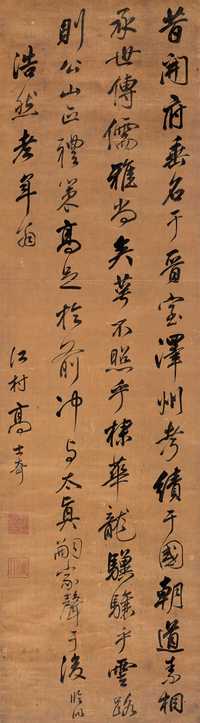 昔開府垂名于晉室澤州考績于國朝道素相
承世傳儒雅尚矣萼不照乎棣華龍驥驤乎雲路
則公山正禮策高足於前沖與太真嗣家聲于後臨似
浩然老年翁
江村高士奇